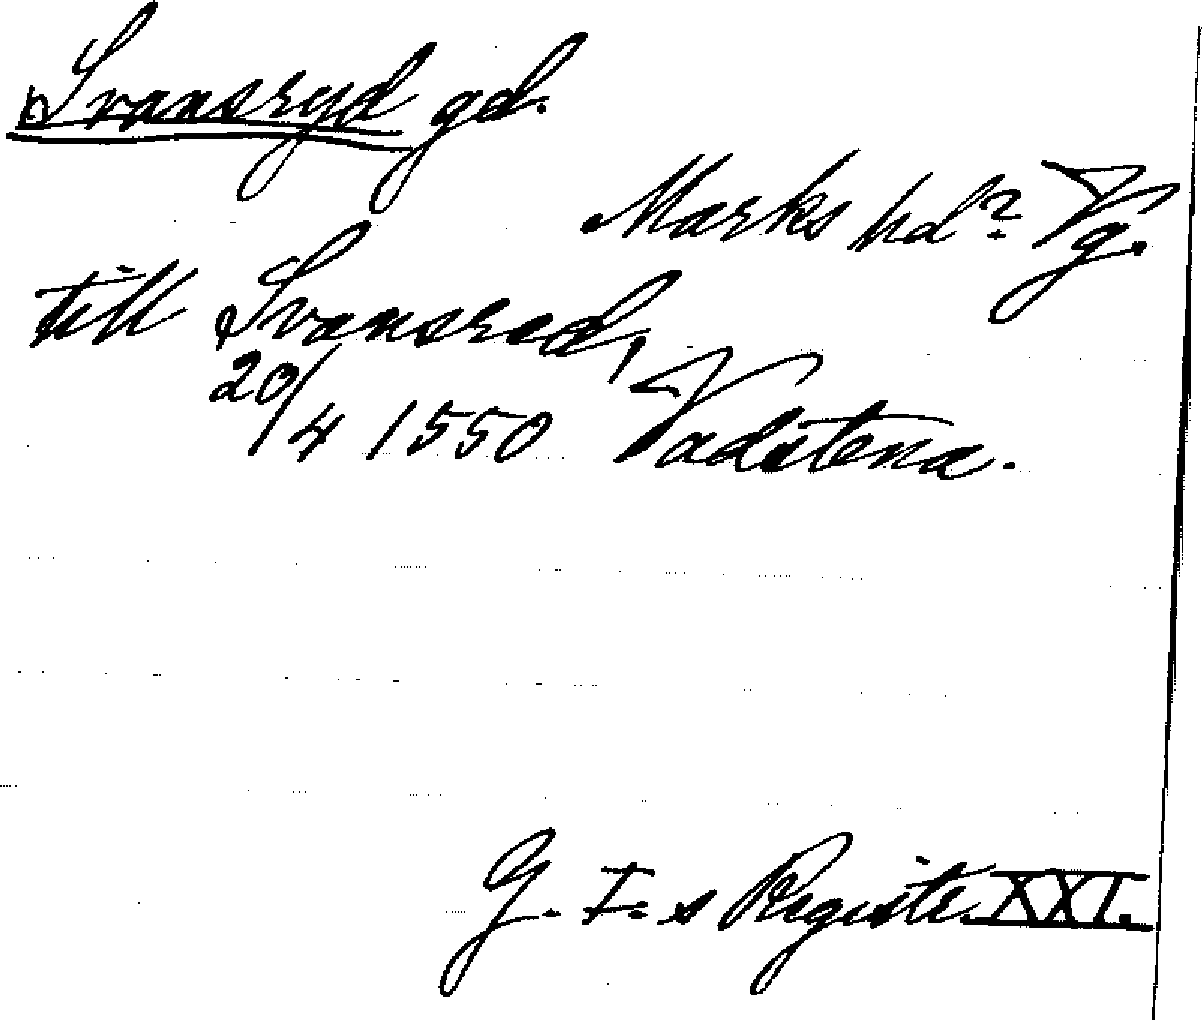 Svansryd gd.
Marks hd? Vg.
till Svansred,
20/4 1550 Vadstena.
G. I:s Registr. XXI.